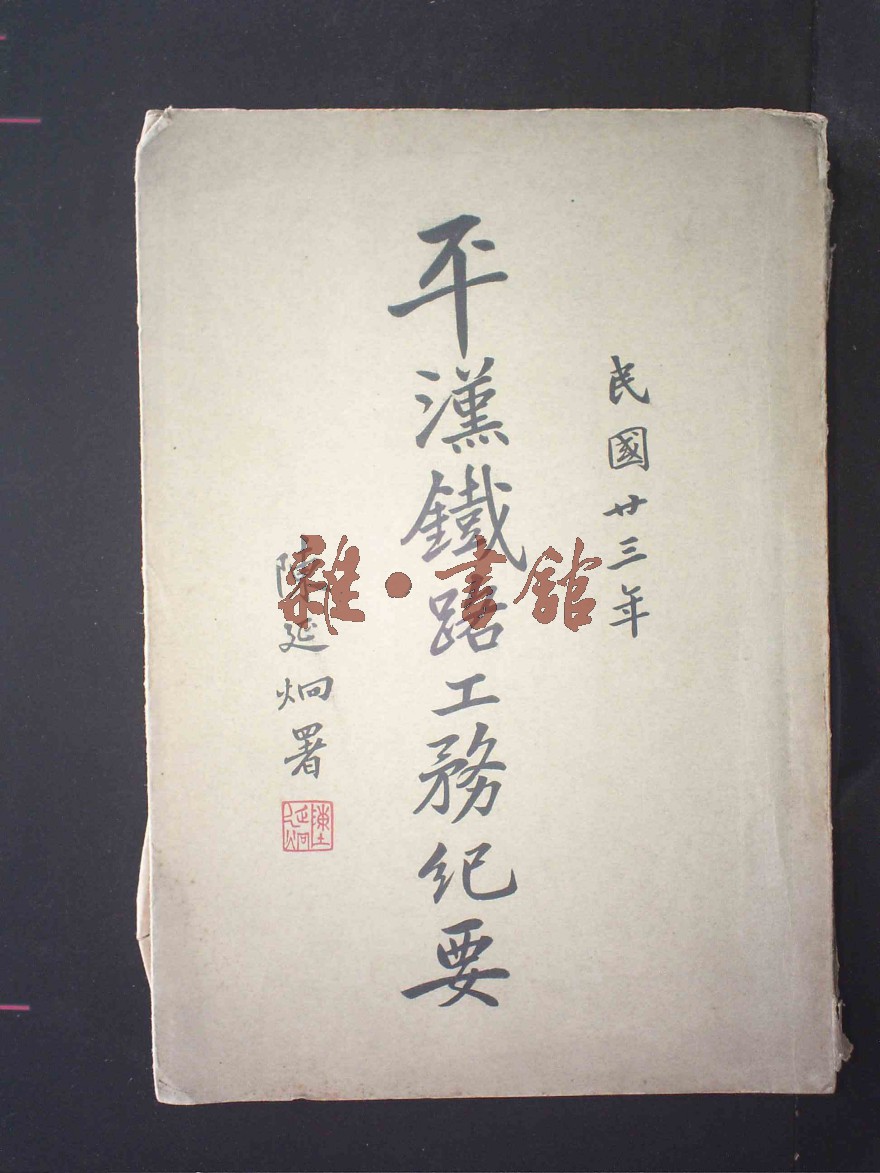 民國廿三年
平漢鐵路工務紀要
陳延炯署
陳延炯
雜·書館